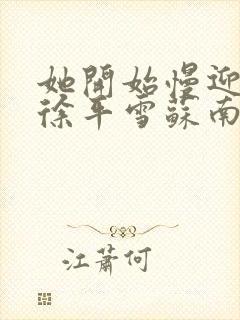 她開始慢迎
徐年雪蘇南
江蕭何